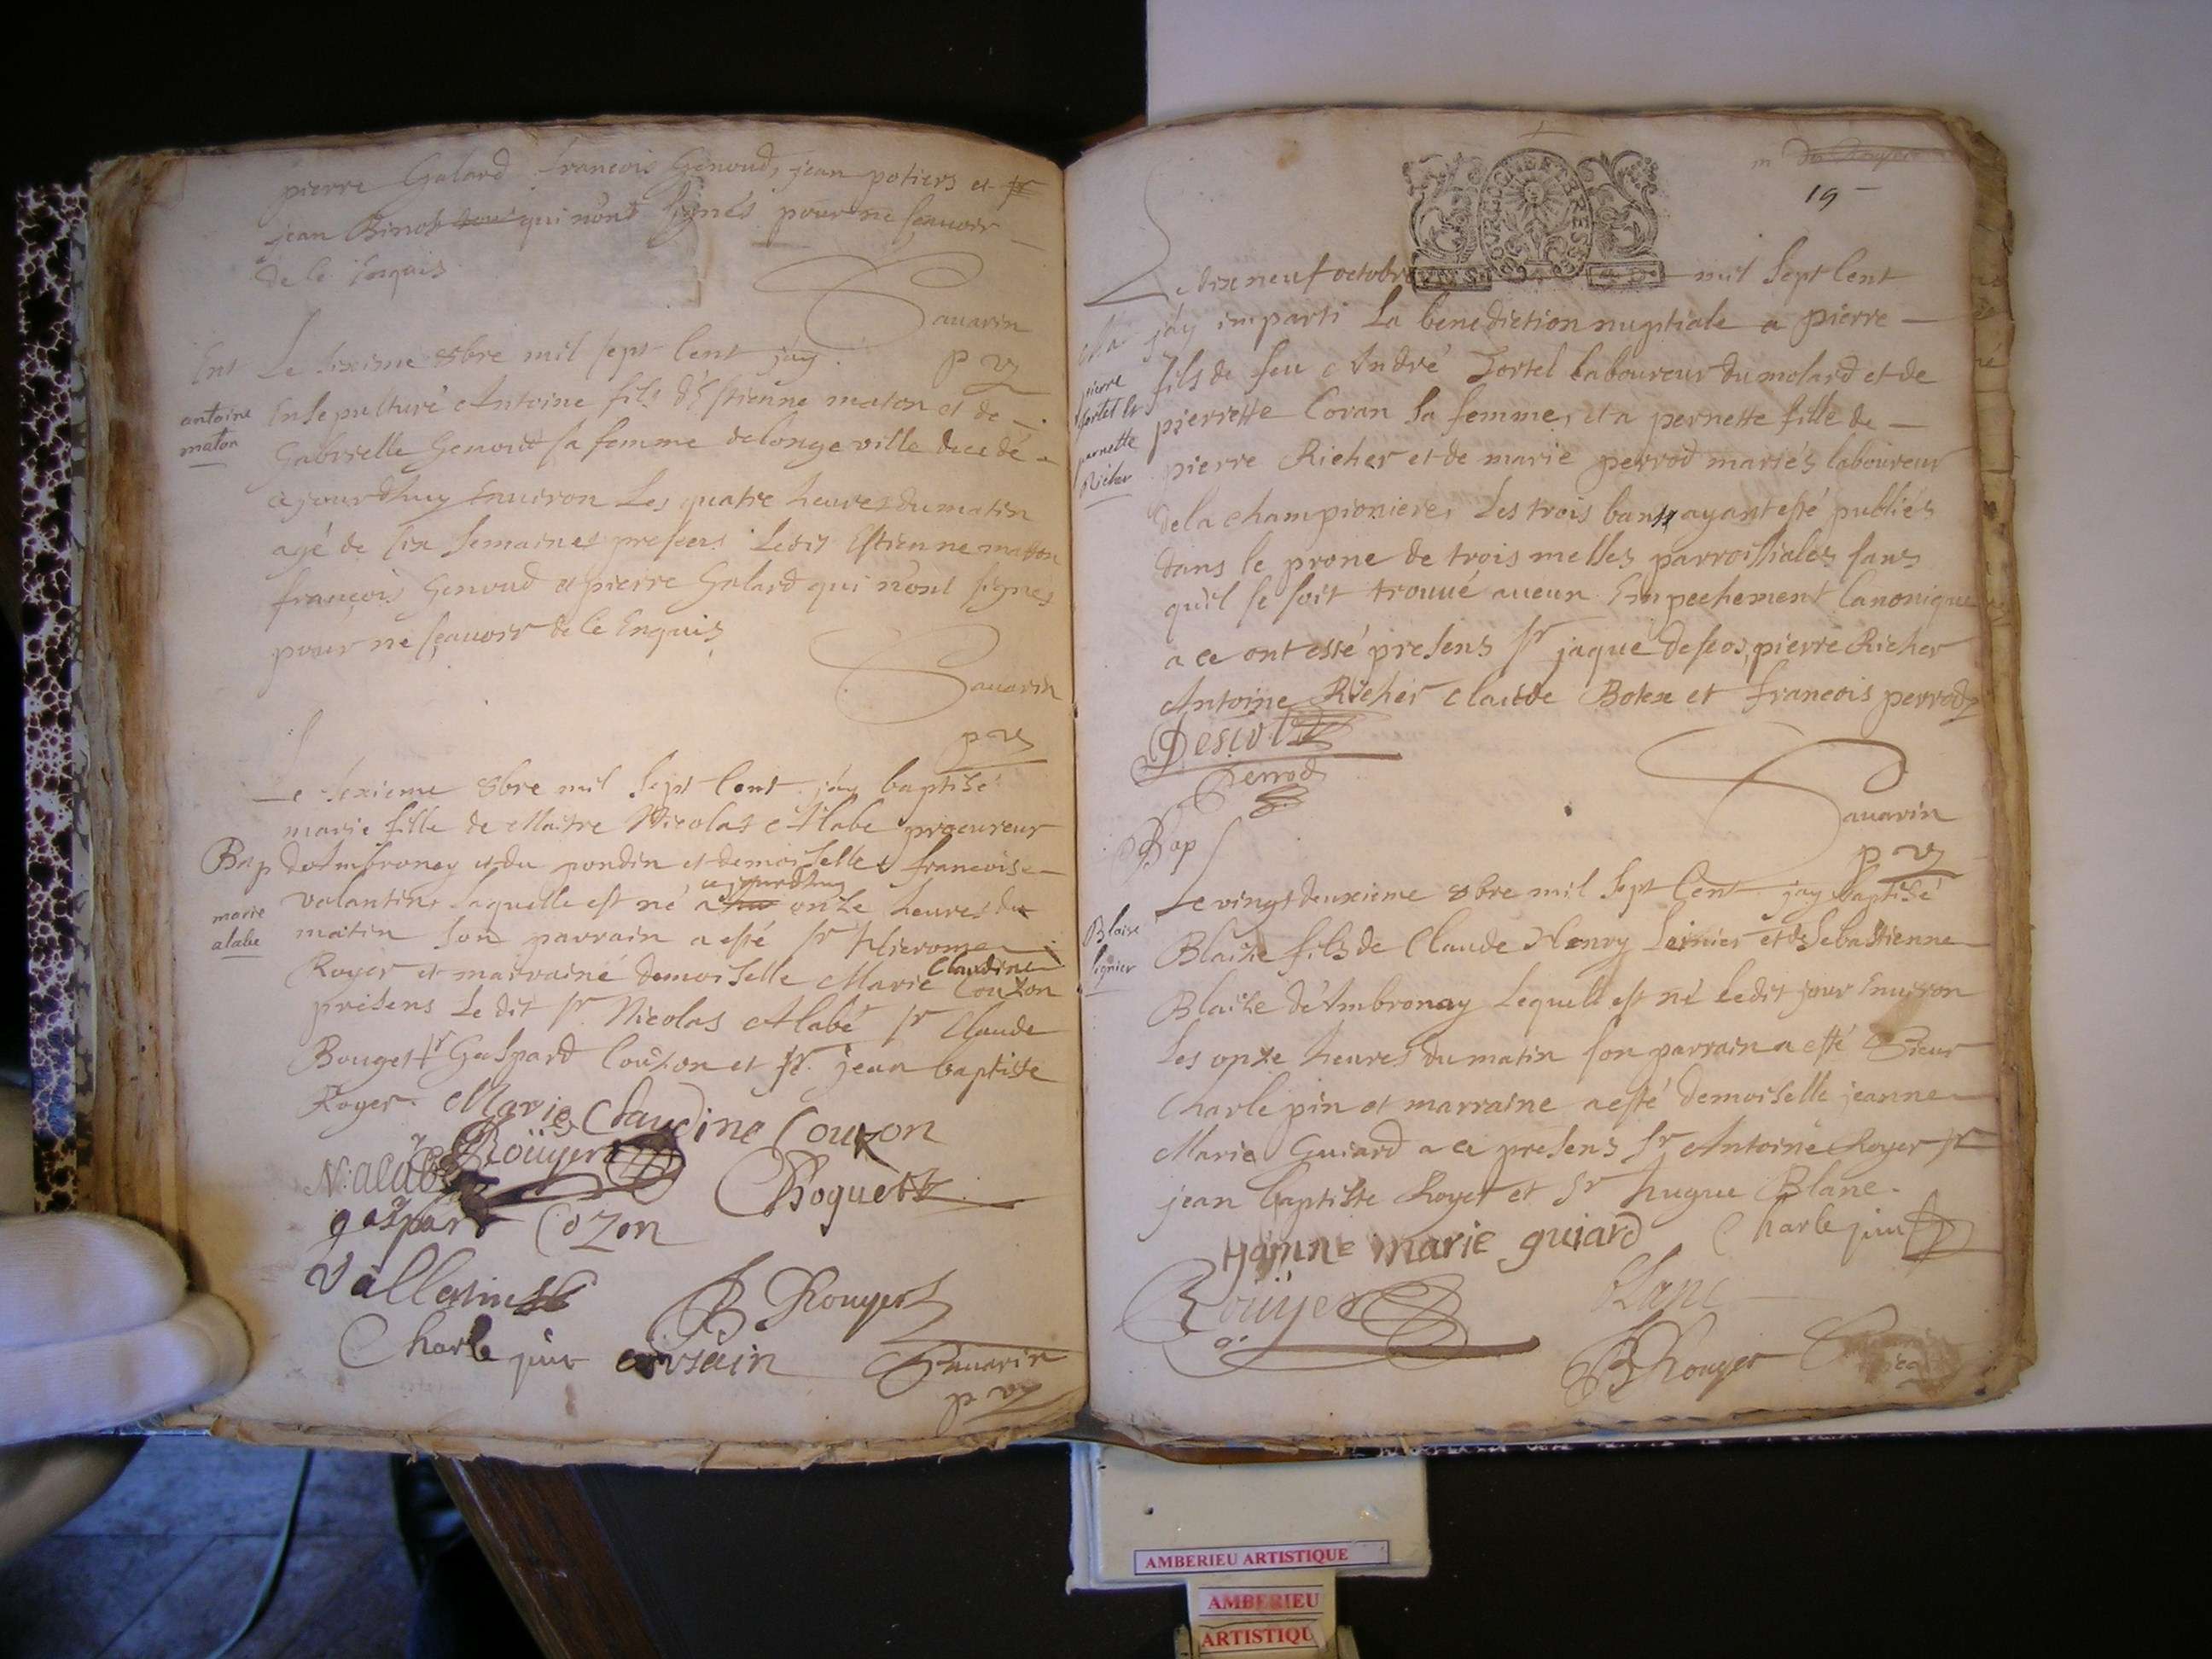 pierre Galard francois Genoud, jean potiers et
jean Binot qui n'ont signés pour ne scauoir
de ce Enquis
Sauarin
Ent Le sixieme 8bre mil sept Cent j'ay
antoine
maton
Ensepulturé Antoine fils d'Estienne maton et de
Gabrielle Genoud sa femme de longeville decedé
aujourdhuy Enuiron Les quatre heures du matin
agé de six semaines presens Ledit Estienne matton
françois Genoud et pierre Galard qui n'ont signés
pour ne sçauoir de ce Enquis
Sauarin
Le sexieme 8bre mil Sept Cent j'ay baptisé
marie fille de Maitre Nicolas Alabe procureur
Bap d'Ambronay et du pondin et demoiselle francoise
marie
alabe
Valantin, Laquelle est né aujourdhuy a onze heures du
matin son parrain a esté sr Hierome
Royer et marraine demoiselle Marie Claudine Couzon
présens Le dit sr Nicolas Alabé sr Claude
Bouget sr Gaspard Couzon et sr jean baptiste
Royer.
Marie Claudine Couzon
Roüyer
N: alabe
gaspart Cozon
Vallentin
B Rouyer
Charle pin
Sauarin
19
Le dix neuf octobre mil Sept Cent
Ma j'ay imparti La benediction nuptiale a pierre
pierre
et
pernette
Richer
fils de feu André Tortel Laboureur du molard et de
pierrette Coran sa femme, et a pernette fille de
pierre Richer et de marie perrod mariés laboureur
de la championiere, Les trois bans ayant esté publiés
dans le prone de trois messes parroissiales sans
qu'il se soit trouué aucun Empechement Canonique
a ce ont esté presens sr jaque Descos, pierre Richer
Antoine Richer Claude Botex et francois perrod
Perrod
Sauarin
Bap
Blaise
Le vingt deuxieme 8bre mil Sept Cent j'ay baptisé
Blaise fils de Claude Henry et de Sebastienne
Blaise d'Ambronay Lequell est né ledit jour Enuiron
Les onze heures du matin son parrain a esté Sieur
Charle pin et marraine a esté demoiselle jeanne
Marie Guiard a ce presens Sr Antoine Royer sr
jean baptiste Royer et Sr hugue Blanc.
marie guiard
Charle pin
Roüyer
Blanc
B Rouyer
AMBERIEU ARTISTIQUE
AMBERIEU
ARTISTIQU